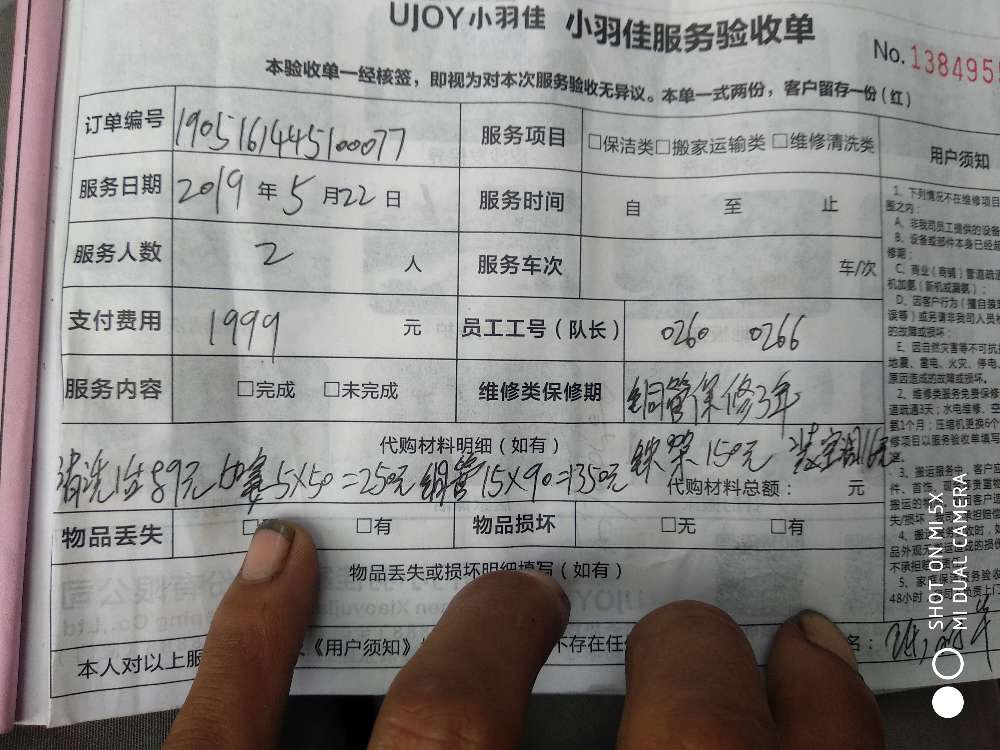 UJOY小羽佳 小羽佳服务验收单
No.138495
本验收单一经核签，即视为对本次服务验收无异议。本单一式两份，客户留存一份(红)
订单编号 1905161445100077 服务项目 □保洁类□搬家运输类 □维修清洗类 用户须知
服务日期 2019年5月22日 服务时间 自 至 止
服务人数 2 人 服务车次 车/次
支付费用 1999 元 员工工号（队长） 0260 0266
服务内容 □完成 □未完成 维修类保修期 铜管保修3年
代购材料明细（如有）
清洗1台89元 加氨5X50=250元 铜管15X90=1350元 铁架150元 装空调160元
代购材料总额： 元
物品丢失 □ □有 物品损坏 □无 □有
物品丢失或损坏明细填写（如有）
本人对以上服 《用户须知》 不存在任 名：
1、下列情况不在维修项目
围之内：
A、非我司员工提供的设备
B、设备或部件本身已经超
修期；
C、商业（商铺）管道疏通
机加氨（新机或漏氨）；
D、因客户行为（擅自装
误等）或另请非我司人员
的故障或损坏；
E、因自然灾害等不可抗
地震、雷电、火灾、停电、
原因造成的故障或损坏。
2、维修类服务免费保修
道疏通3天；水电维修、空
到1个月；压缩机更换6个
修项目以服务验收单填写
3、搬运服务中，客户
件、首饰、现
搬运的
失/损坏
承担赔偿
4、搬
收时，
品外观无
运造成的损
不承担赔
5、家
务验收
48小时
SHOT ON MI 5X
MI DUAL CAMERA